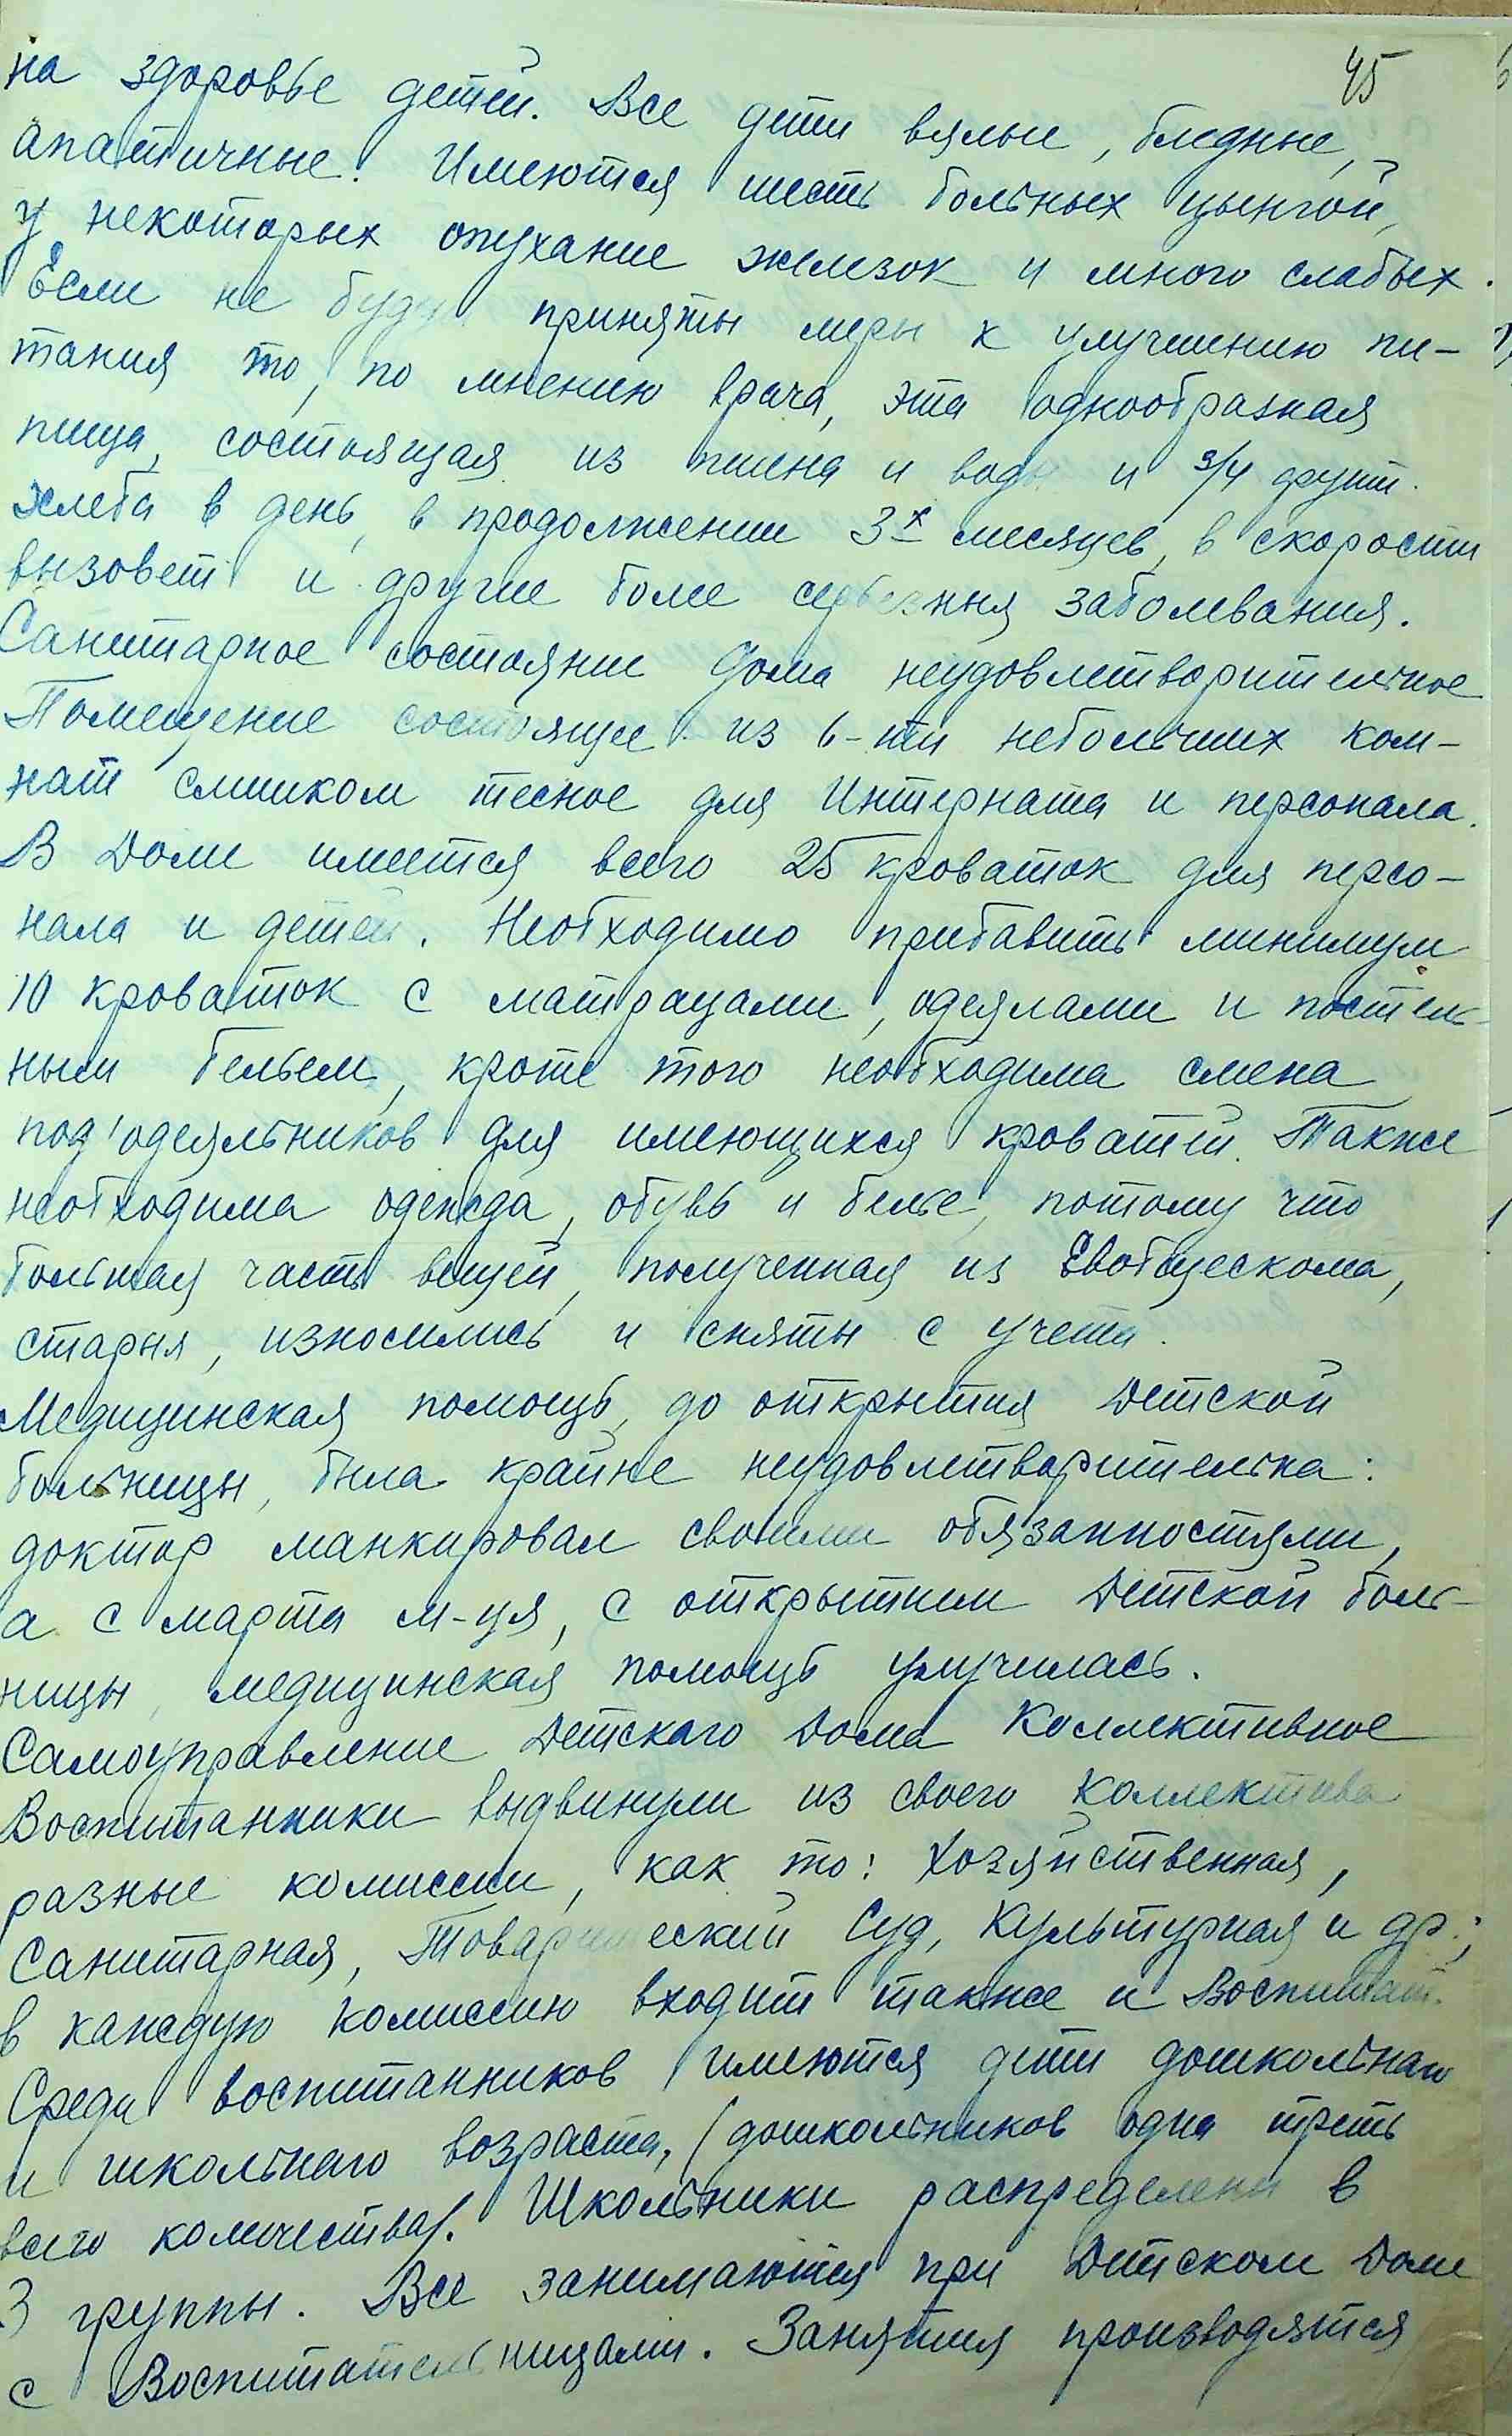 45
на здоровье детей. Все дети вялые, бледные,
апатичные. Имеются шесть больных цынгой,
у некоторых опухание железок и много слабых.
Если не будут приняты меры к улучшению пи-
тания то, по мнению врача, эта однообразная
пища, состоящая из пшена и воды и 3/4 фунт.
хлеба в день, в продолжении 3х месяцев, в скорости
вызовет и другие более серьезныя заболевания.
Санитарное состояние дома неудовлетворительное
Помещение состоящее из 6-ти небольших ком-
нат слишком тесное для Интерната и персонала.
В Доме имеется всего 25 кроваток для персо-
нала и детей. Необходимо прибавить минимум
10 кроваток с матрацами, одеялами и постель-
ным бельем, кроме того необходима смена
под'одеяльников для имеющихся кроватей. Также
необходима одежда, обувь и белье, потому что
большая часть вещей, полученная из Евобщескома,
старыя, износились и сняты с учета.
Медицинская помощь, до открытия Детской
больницы, была крайне неудовлетворительна:
доктор манкировал своими обязанностями,
а с марта м-ца, с открытием Детской боль-
ницы, медицинская помощь улучшилась.
Самоуправление Детскаго Дома Коллективное
Воспитанники выдвинули из своего коллектива
разные комиссии, как то: Хозяйственная,
Санитарная, Товарищеский Суд, Культурная и др.;
в каждую комиссию входит также и Воспитат.
Среди воспитанников имеются дети дошкольнаго
и школьнаго возраста, (дошкольников одна треть
всего количества). Школьники распределены в
3 группы. Все занимаются при Детском Доме
с Воспитательницами. Занятия производятся